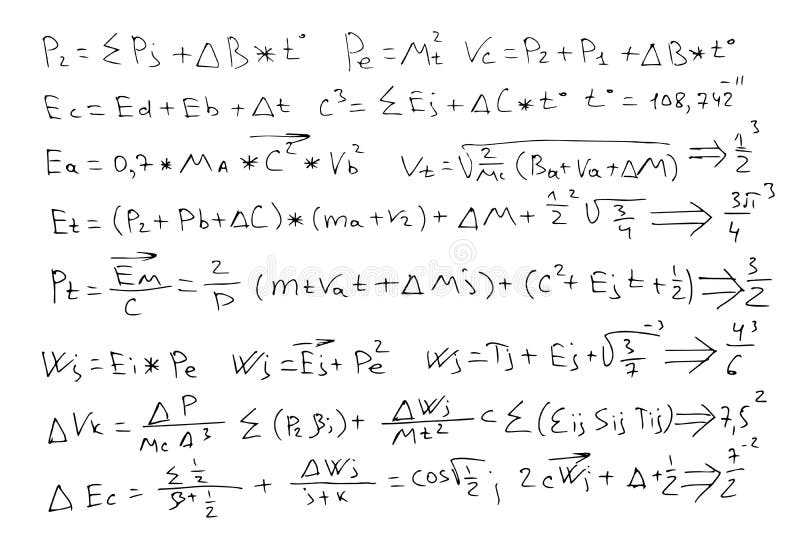 P₂ = ΣPj + ΔB * t° Pe = Mt² Vc = P₂ + P₁ + ΔB * t°
Ec = Ed + Eb + Δt c³ = ΣEj + ΔC * t° t° = 108,742⁻¹¹
Ea = 0,7 * MA * C² * Vb² Vt = √(2/Mc) (Ba + Va + ΔM) ⇒ 1/2³
Et = (P₂ + Pb + ΔC) * (ma + v₂) + ΔM + 1/2² √(3/4) ⇒ 3π/4³
Pt = EM/C = 2/D (mtVat + ΔMj) + (C² + Ejt + 1/2) ⇒ 3/2
Wj = Ei * Pe Wj = Ej + Pe² Wj = Tj + Ej + √(3/7)⁻³ ⇒ 4³/6
ΔVk = ΔP/McΔ³ Σ(P₂βj) + ΔWj/Mt² c Σ(Σij Sij Tij) ⇒ 7,5²
ΔEc = Σ1/2 / β+1/2 + ΔWj/j+k = cos√(1/2) ; 2cWj + Δ + 1/2 ⇒ 7⁻²/2